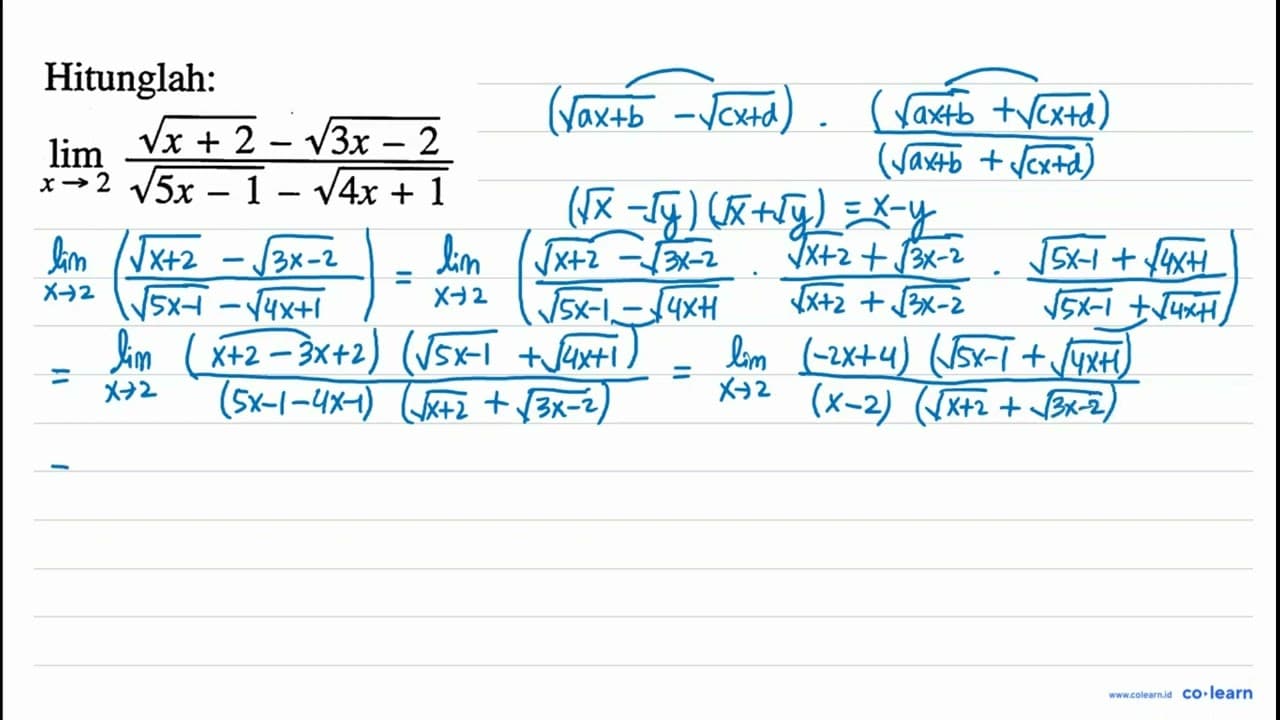 Hitunglah:
lim x→2 (√(x + 2) − √(3x − 2)) / (√(5x − 1) − √(4x + 1))
(√(ax+b) − √(cx+d)) . (√(ax+b) + √(cx+d)) / (√(ax+b) + √(cx+d))
(√x − √y) (√x + √y) = x−y
lim x→2 ((√(x+2) − √(3x−2)) / (√(5x−1) − √(4x+1))) = lim x→2 ((√(x+2) − √(3x−2)) / (√(5x−1) − √(4x+1)) . (√(x+2) + √(3x−2)) / (√(x+2) + √(3x−2)) . (√(5x−1) + √(4x+1)) / (√(5x−1) + √(4x+1)))
= lim x→2 (x+2 − 3x+2) (√(5x−1) + √(4x+1)) / (5x−1−4x−1) (√(x+2) + √(3x−2)) = lim x→2 (−2x+4) (√(5x−1) + √(4x+1)) / (x−2) (√(x+2) + √(3x−2))
−
www.colearn.id co·learn